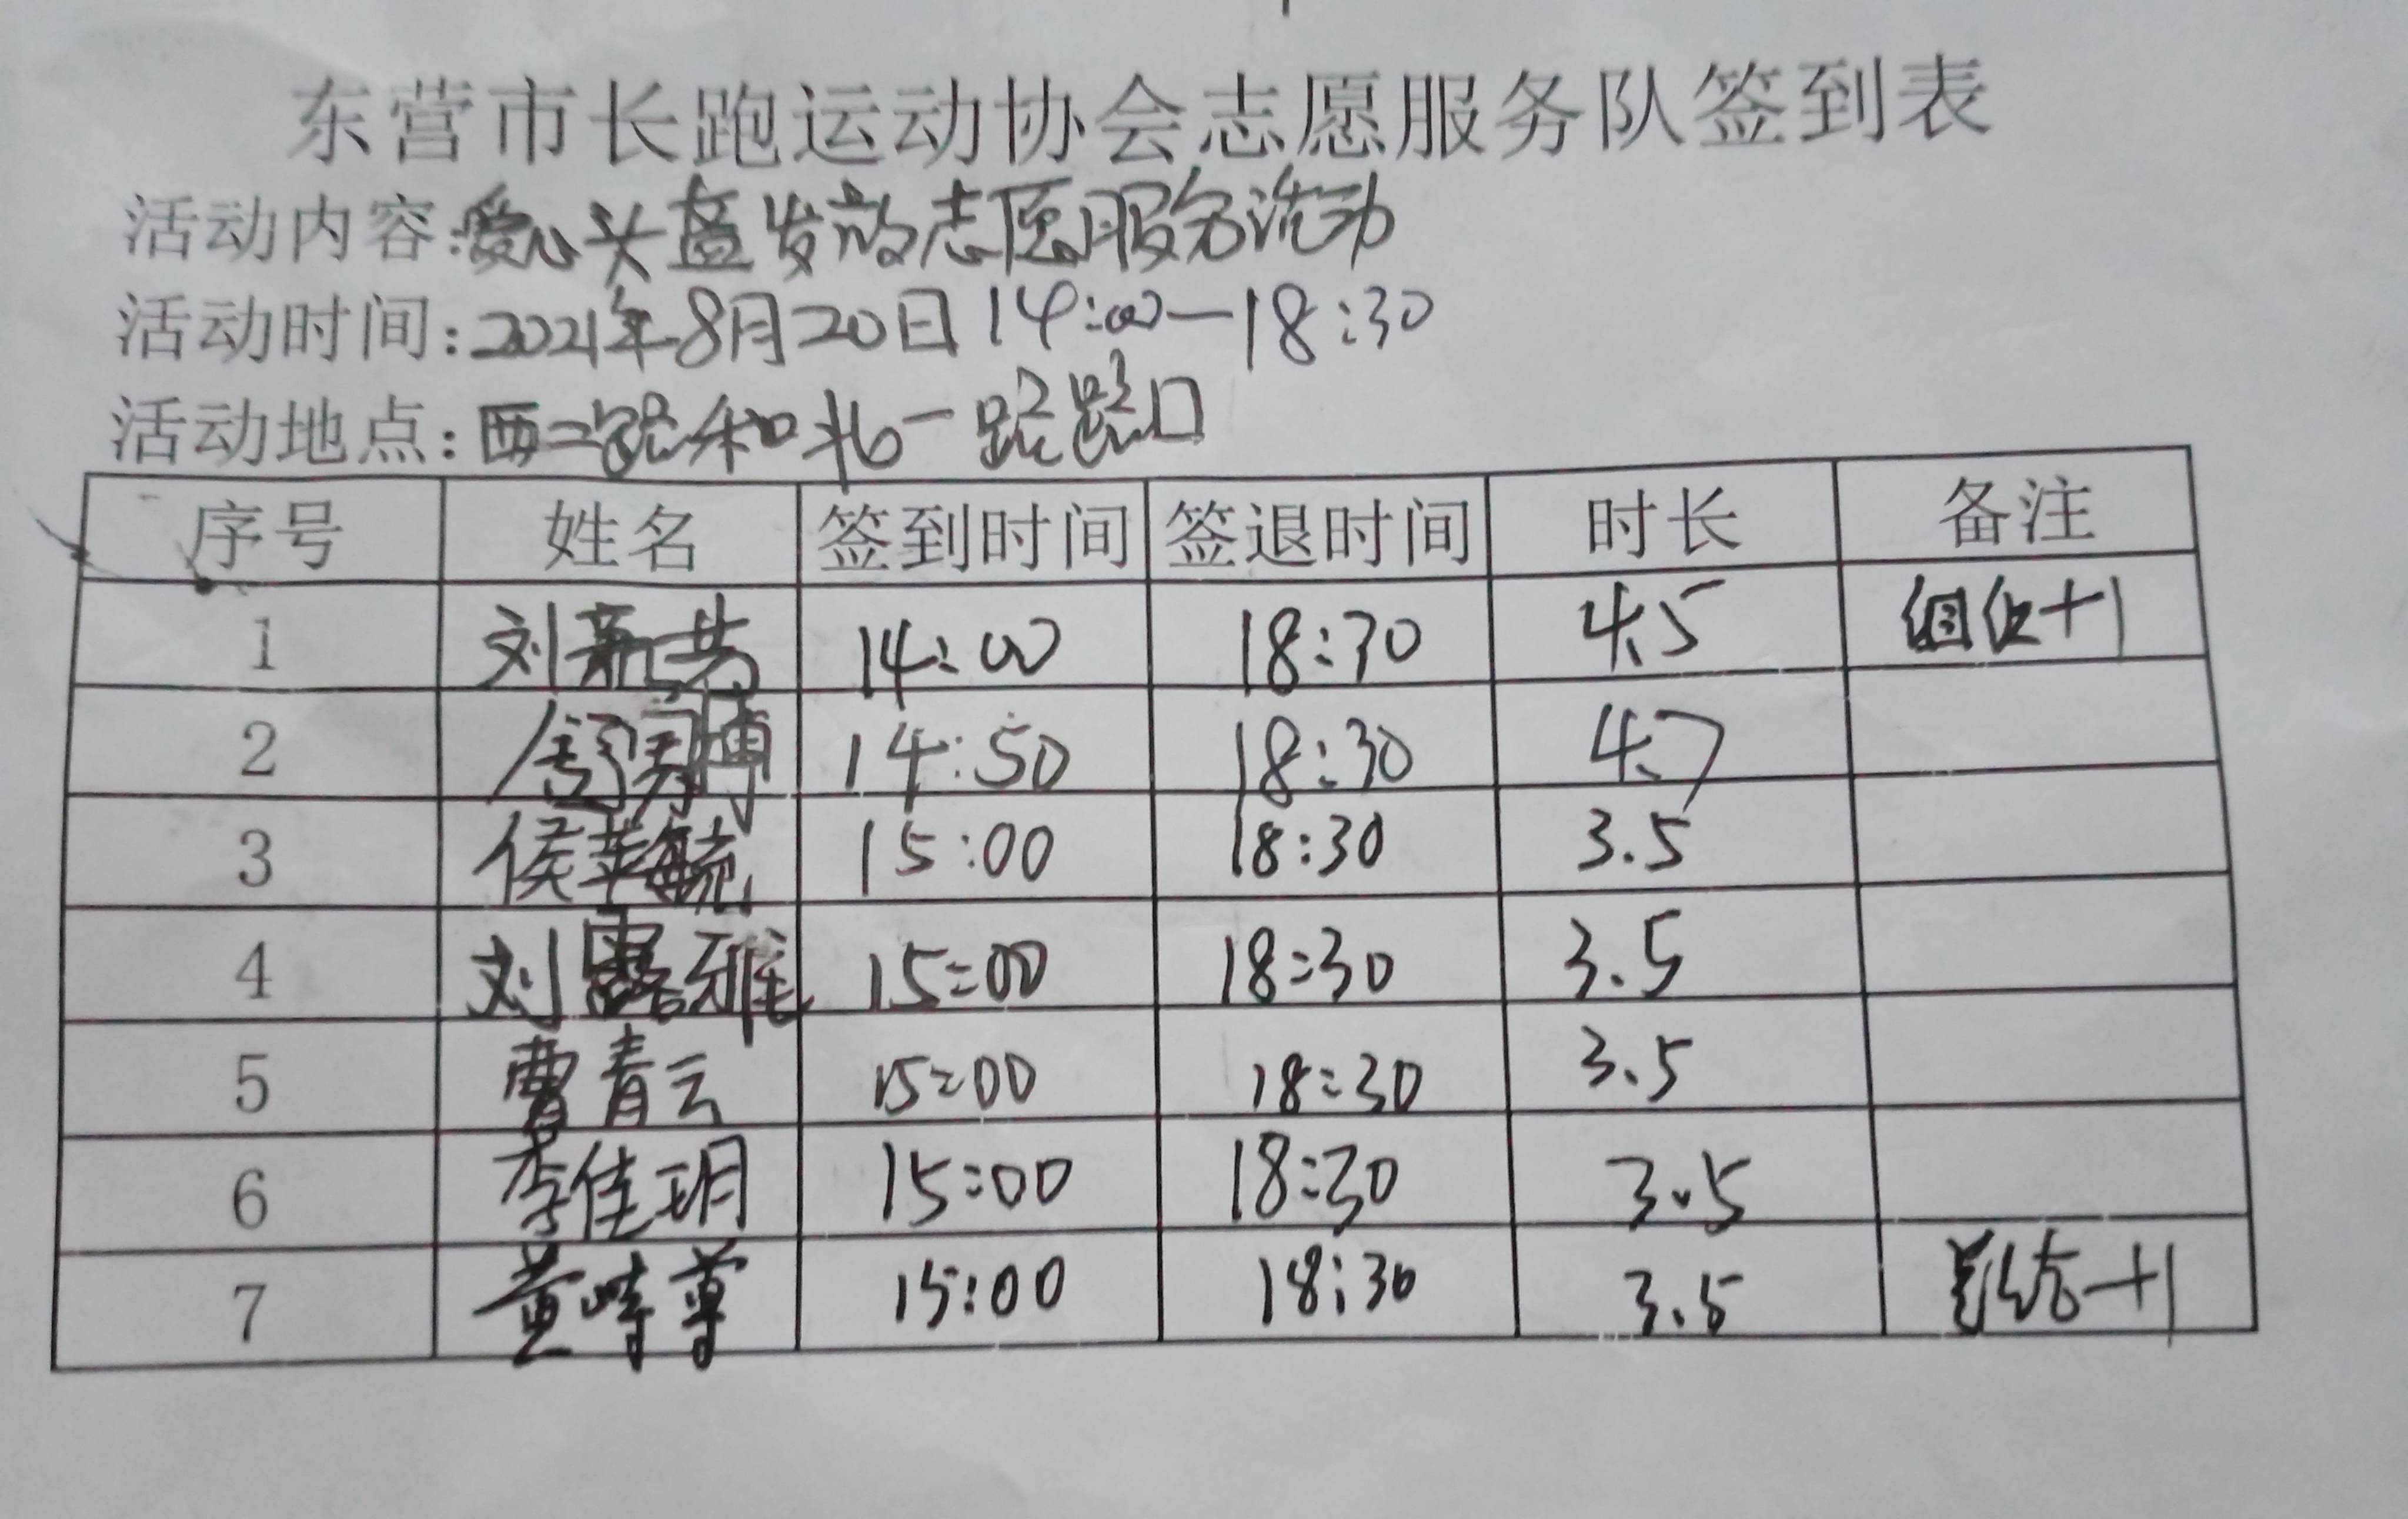 东营市长跑运动协会志愿服务队签到表
活动内容:爱心头盔发放志愿服务活动
活动时间:2021年8月20日14:00—18:30
活动地点:西二路和北一路路口
序号 姓名 签到时间 签退时间 时长 备注
1 刘新芸 14:00 18:30 4.5 组织+1
2 14:50 18:30 4.7
3 侯苹毓 15:00 18:30 3.5
4 刘露雅 15:00 18:30 3.5
5 曹青云 15:00 18:30 3.5
6 李佳玥 15:00 18:30 3.5
7 黄 尊 15:00 18:30 3.5 总结+1